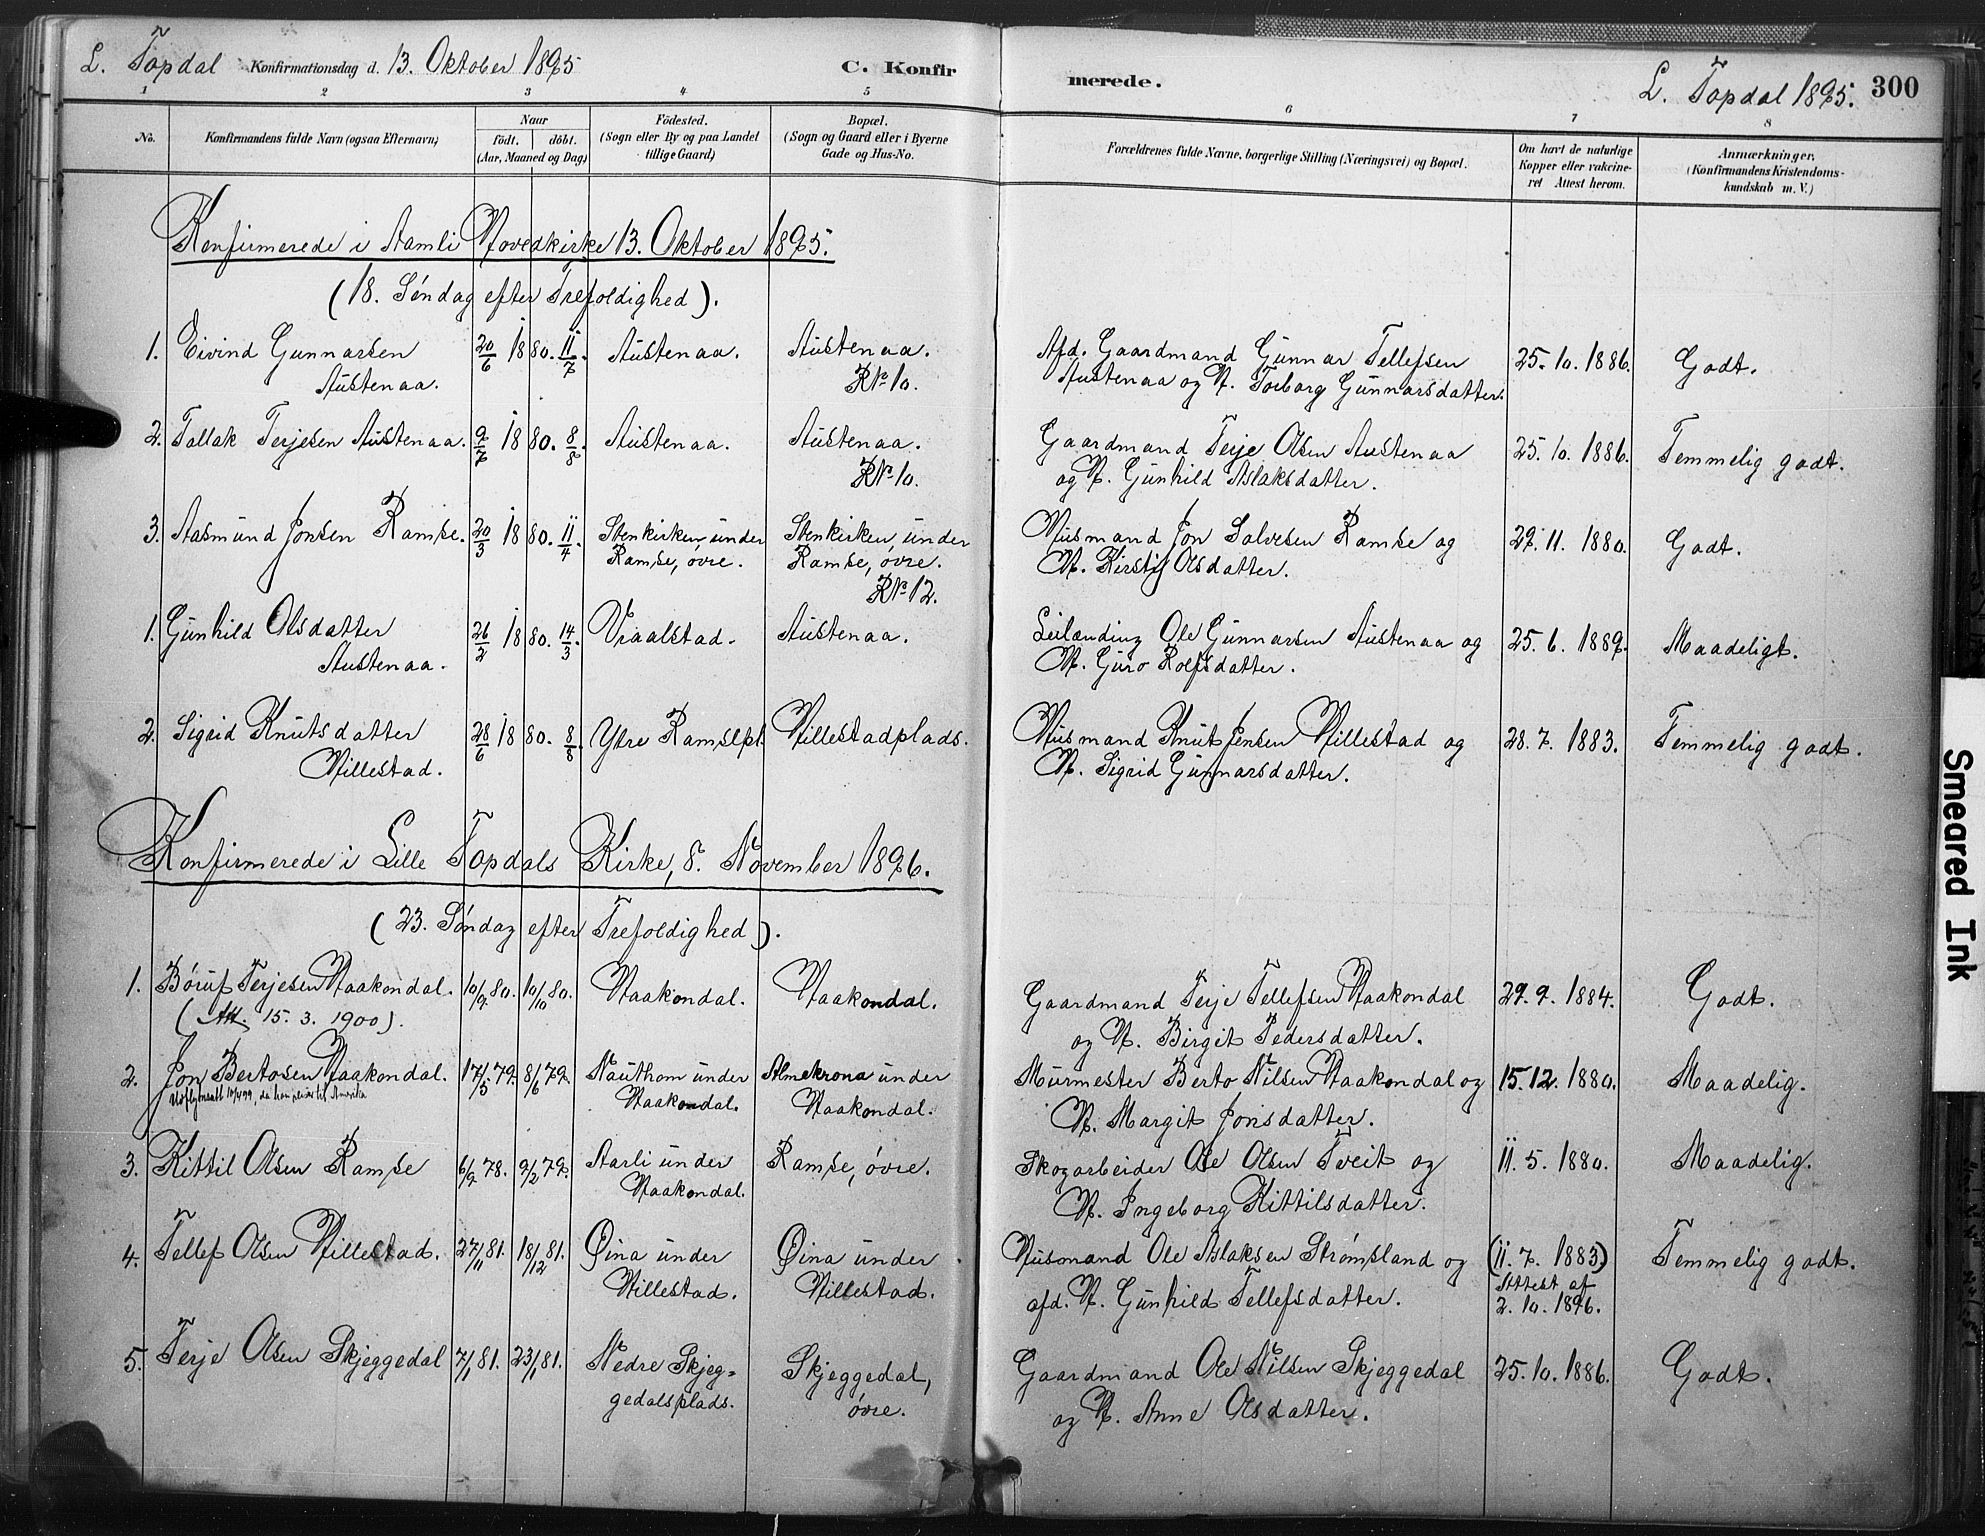 L. Topdal Konfirmationsdag d. 13. Oktober 1895
C. Konfirmerede.
L. Topdal 1895. 300
1 2 3 4 5 6 7 8
No. Konfirmandens fulde Navn (ogsaa Efternavn)
Naar
födt. döbt.
(Aar, Maaned og Dag)
Födested.
(Sogn eller By og paa Landet
tillige Gaard)
Bopæl.
(Sogn og Gaard eller i Byerne
Gade og Hus-No.
Forældrenes fulde Navne, borgerlige Stilling (Næringsvei) og Bopæl.
Om havt de naturlige
Kopper eller vakcine-
ret Attest herom.
Anmærkninger.
(Konfirmandens Kristendoms-
kundskab m. V.)
Konfirmerede i Aamli Hovedkirke 13. Oktober 1895.
(18. Söndag efter Trefoldighed).
1. Eivind Gunnarsen 20/6 1880. 11/7. Austenaa. Austenaa. Afd. Gaardmand Gunnar Tellefsen 25. 10. 1886. Godt.
Austenaa. R№ 10. Austenaa og H. Torborg Gunnarsdatter.
2. Tallak Terjesen Austenaa. 9/7 1880. 8/8. Austenaa. Austenaa. Gaardmand Terje Olsen Austenaa 25. 10. 1886. Temmelig godt.
R№ 10. og H. Gunhild Aslaksdatter.
3. Aasmund Jonsen Ramse. 20/3 1880. 11/4. Stenkirken under Stenkirken under Husmand Jon Salvesen Ramse og 29. 11. 1880. Godt.
Ramse, övre. Ramse, övre. H. Kirsti Olsdatter.
R№ 12.
1. Gunhild Olsdatter 26/2 1880. 14/3. Vraalstad. Austenaa. Leilænding Ole Gunnarsen Austenaa og 25. 6. 1889. Maadeligt.
Austenaa. H. Guro Rolfsdatter.
2. Sigrid Knutsdatter 28/6 1880. 8/8. Ytre Ramsepl. Hillestadplads. Husmand Knut Jensen Hillestad og 28. 7. 1883. Temmelig godt.
Hillestad. H. Sigrid Gunnarsdatter.
Konfirmerede i Lille Topdals Kirke, 8. November 1896.
(23. Söndag efter Trefoldighed).
1. Böruf Terjesen Haakondal. 10/9 80. 10/10 80. Haakondal. Haakondal. Gaardmand Terje Tellefsen Haakondal 29. 9. 1884. Godt.
(Att. 15. 3. 1900). og H. Birgit Pedersdatter.
2. Jon Bertosen Haakondal. 17/5 79. 8/6 79. Nauthom under Almekrona under Murmester Berto Nilsen Haakondal og 15. 12. 1880. Maadelig.
Haakondal. Haakondal. H. Margit Jonsdatter.
3. Kittil Olsen Ramse 6/9 78. 9/2 79. Aarli under Ramse, övre. Skogarbeider Ole Olsen Tveit og 11. 5. 1880. Maadelig.
Haakondal. H. Ingeborg Kittilsdatter.
4. Tellef Olsen Hillestad. 27/11 81. 18/12 81. Öina under Öina under Husmand Ole Aslaksen Strömsland og (11. 7. 1883) Temmelig godt.
Hillestad. Hillestad. afd. H. Gunhild Tellefsdatter. Attest af
2. 10. 1896.
5. Terje Olsen Skjeggedal 7/1 81. 23/1 81. Nedre Skjeg= Skjeggedal, Gaardmand Ole Nilsen Skjeggedal 25. 10. 1886. Godt.
gedalsplads. övre. og H. Anne Olsdatter.
Smeared Ink